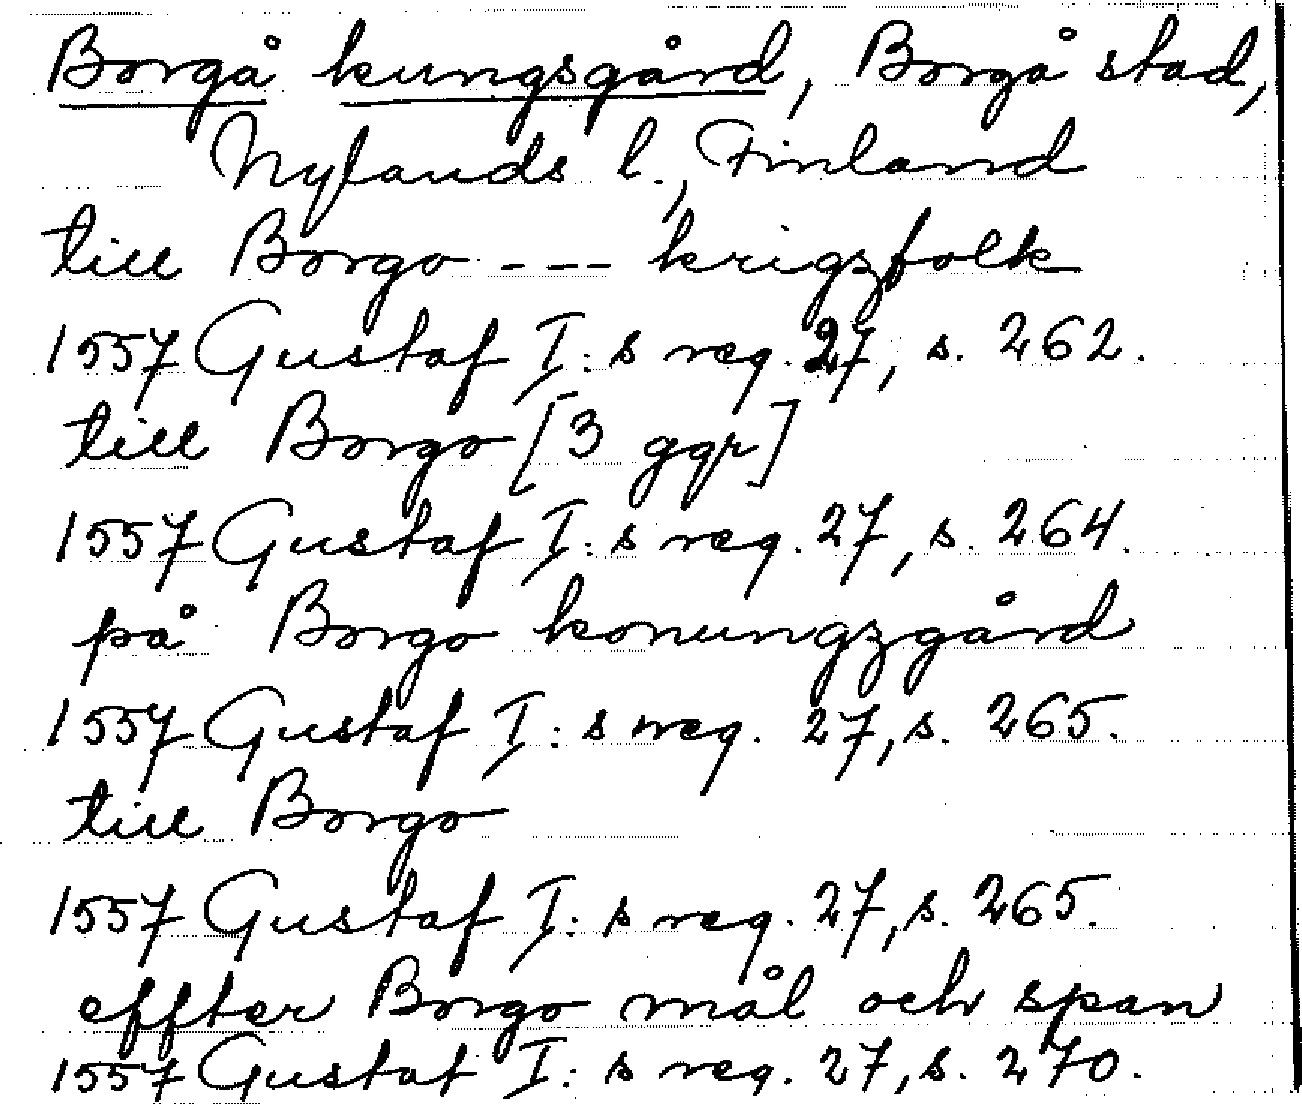 Borgå kungsgård, Borgå stad,
Nylands l., Finland
till Borgo --- krigzfolk
1557 Gustaf I:s reg. 27, s. 262.
till Borgo [3 ggr]
1557 Gustaf I:s reg. 27, s. 264.
på Borgo konungzgård
1557 Gustaf I:s reg. 27, s. 265.
till Borgo
1557 Gustaf I:s reg. 27, s. 265.
effter Borgo mål och span
1557 Gustaf I:s reg. 27, s. 270.